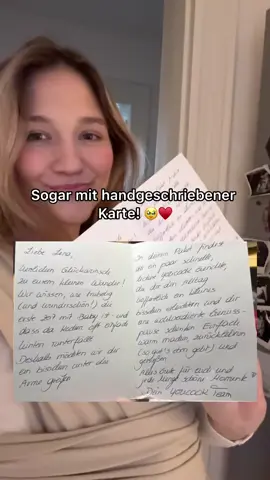 Sogar mit handgeschriebener
Karte! 🥹♥️
Liebe Lena,
Herzlichen Glückwunsch
zu eurem kleinen Wunder!
Wir wissen, wie trubelig
(und wundervoll!) die
erste Zeit mit Baby ist - und
dass das Kochen oft einfach
hinten runterfällt.
Deshalb möchten wir dir
ein bisschen unter die
Arme greifen
In deinem Paket findest
du ein paar schnelle,
lecker gekochte Gerichte,
die dir den Alltag
hoffentlich ein kleines
bisschen erleichtern und dir
eine wohlverdiente Genuss-
pause schenken. Einfach
warm machen, zurücklehnen
(so gut's eben geht) und
genießen.
Alles Gute für euch und
jede Menge schöne Momente
Dein Youcook Team